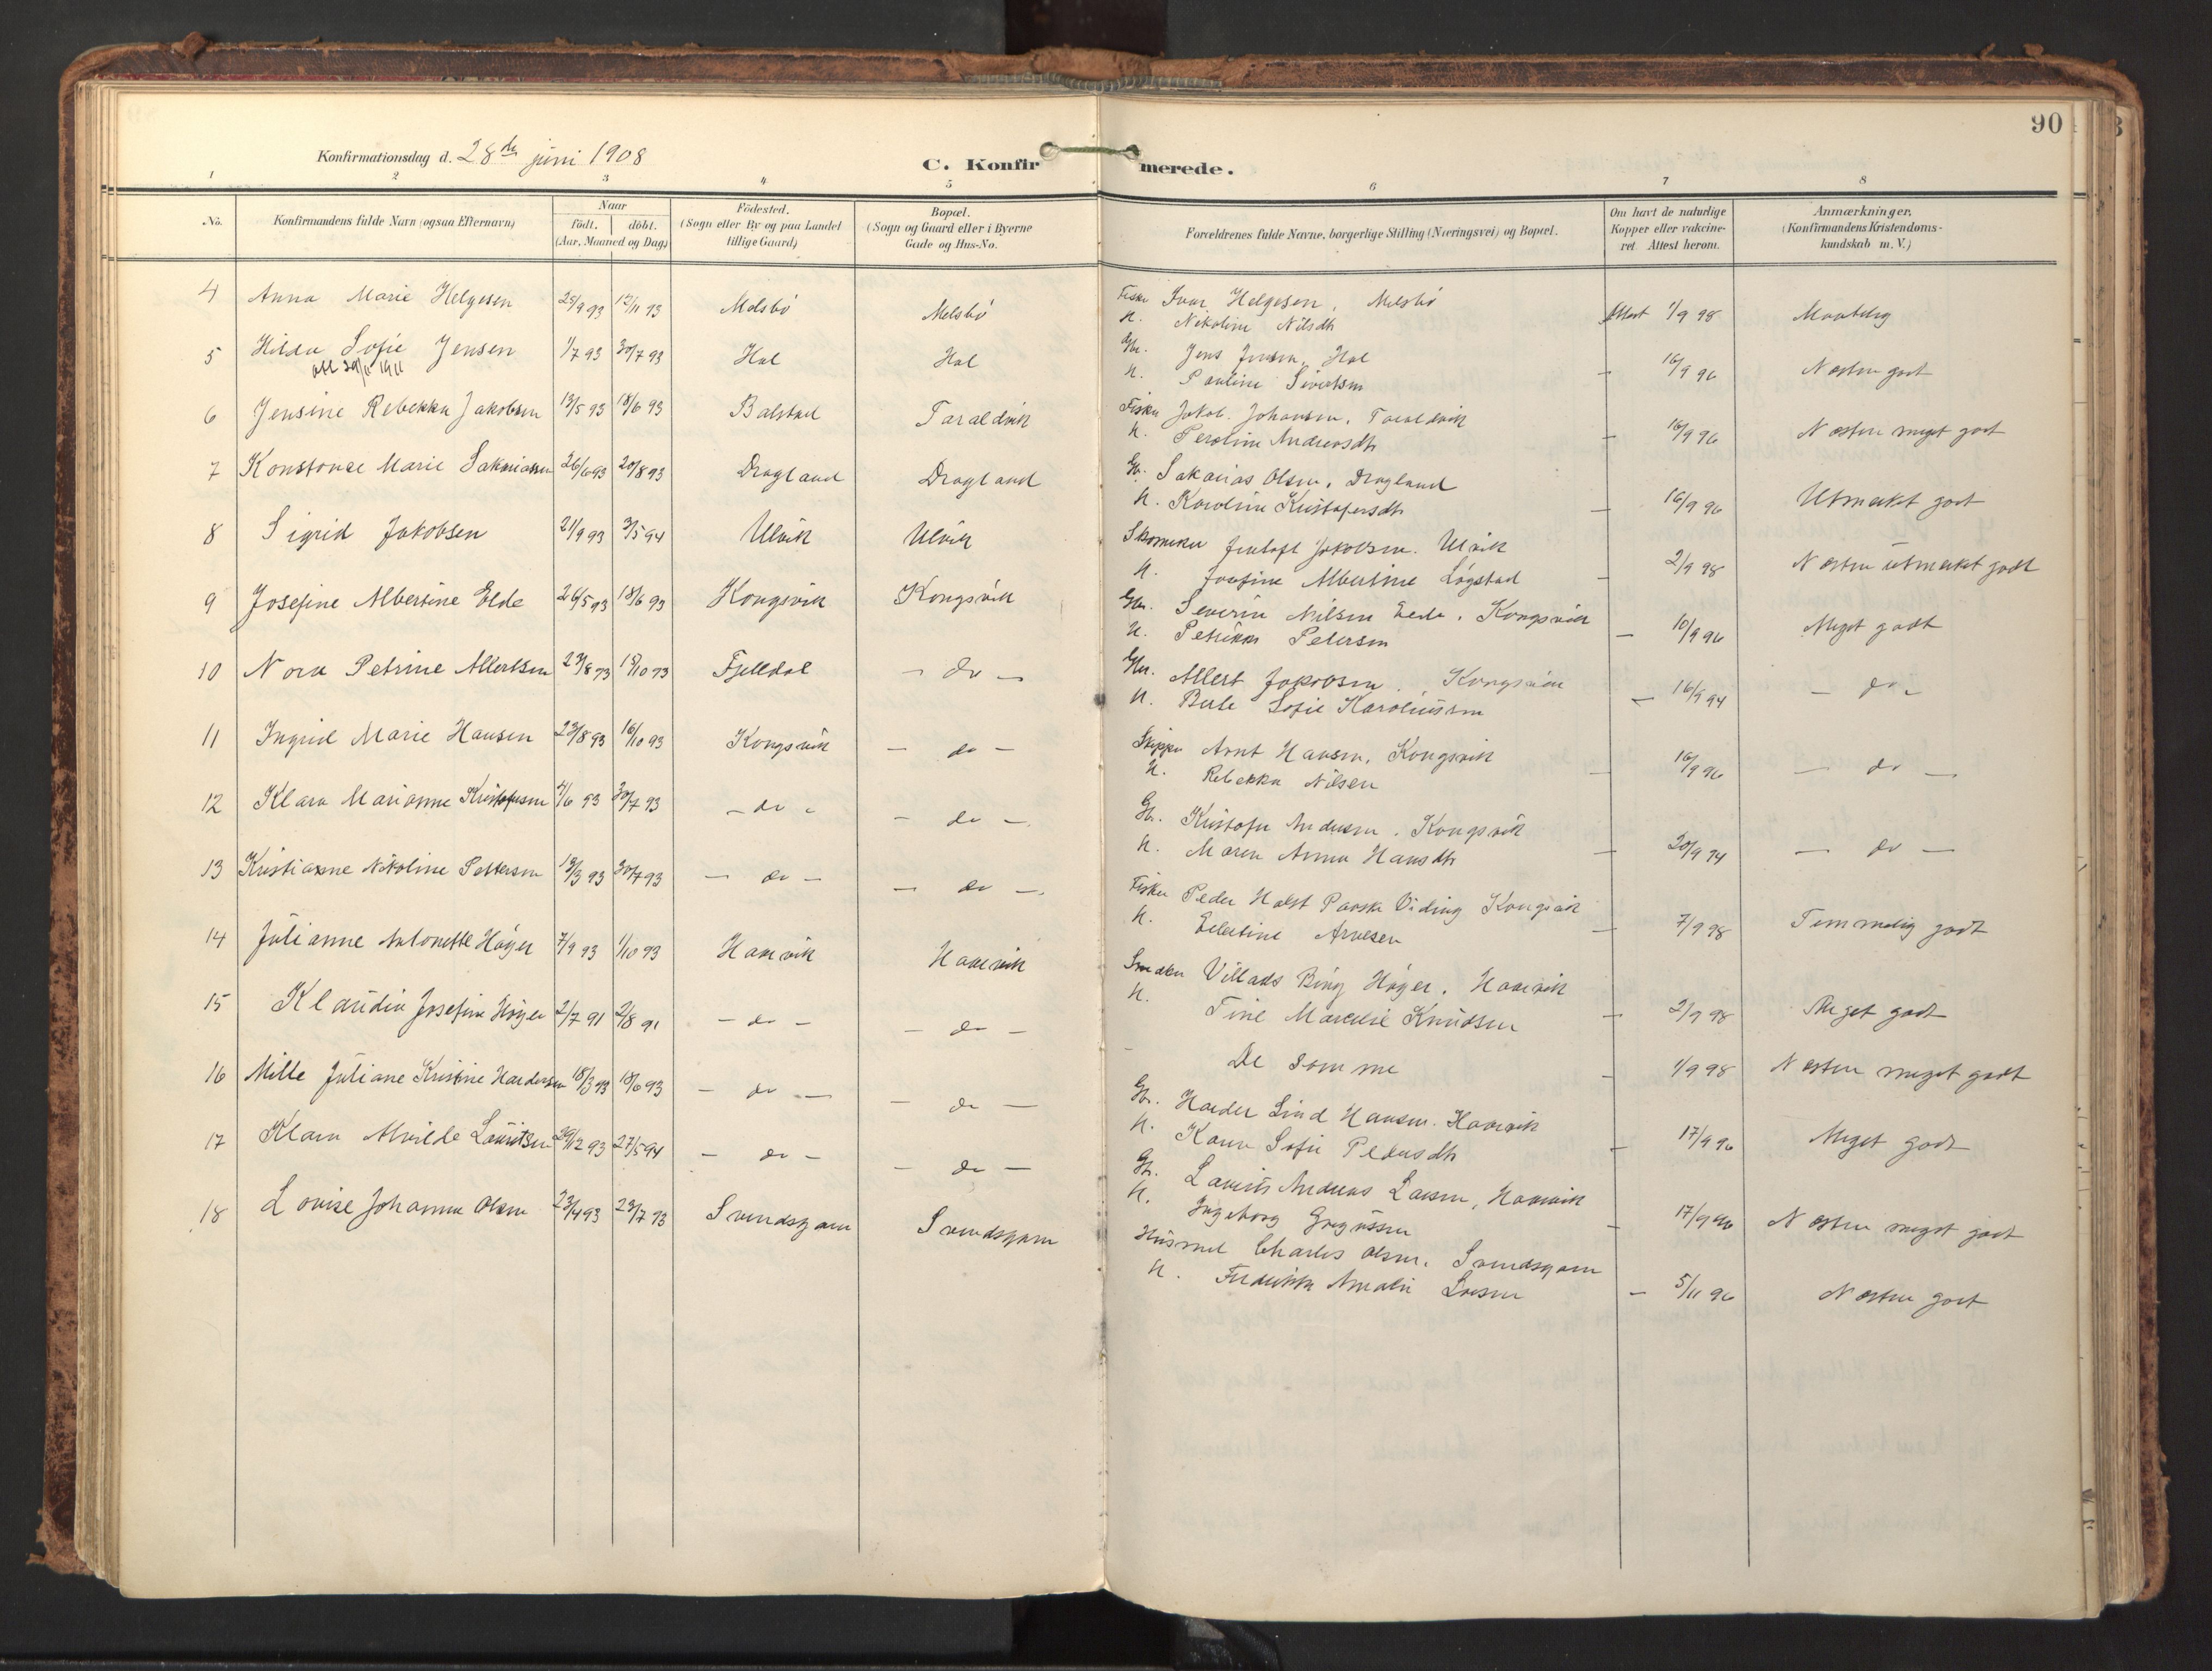 90
Konfirmationsdag d. 28de juni 1908
C. Konfirmerede.
1 2 3 4 5 6 7 8
No.
Konfirmandens fulde Navn (ogsaa Efternavn)
Naar
født. døbt.
(Aar, Maaned og Dag)
Födested.
(Sogn eller By og paa Landet
tillige Gaard)
Bopæl.
(Sogn og Gaard eller i Byerne
Gade og Hus-No.
Forældrenes fulde Navne, borgerlige Stilling (Næringsvei) og Bopæl.
Om havt de naturlige
Kopper eller vakcine-
ret. Attest herom.
Anmærkninger.
(Konfirmandens Kristendoms-
kundskab m. V.)
4 Anna Marie Helgesen 25/9 93 12/11 93 Melsbö Melsbö Fisker Ivar Helgesen, Melsbö Attest 1/9 98 Maadelig
H. Nikoline Nilsdtr
5 Hilda Sofie Jensen 1/7 93 30/7 93 Hol Hol Gbr. Jens Jensen, Hol — 16/9 96 Næsten godt
att 29/11 1911 H. Pauline Sivertsen
6 Jensine Rebekka Jakobsen 13/5 93 18/6 93 Balstad Taraldvik Fisker Jakob Johansen, Taraldvik — 16/9 96 Næsten meget godt
H. Peroline Andreasdtr
7 Konstance Marie Sakariassen 26/6 93 20/8 93 Dragland Dragland Gbr. Sakarias Olsen, Dragland — 16/9 96 Utmerket godt
H. Karoline Kristofersdtr
8 Sigrid Jakobsen 21/9 93 3/5 94 Ulvik Ulvik Skomaker Jentoft Jakobsen. Ulvik — 2/9 98 Næsten utmerket godt
H. Josefine Albertine Lögstad
9 Josefine Albertine Elde 26/5 93 18/6 93 Kongsvik Kongsvik Gbr. Severin Nilsen Elde, Kongsvik — 10/9 96 Meget godt
H. Petrikke Petersen
10 Nora Petrine Albertsen 23/8 93 15/10 93 Fjelldal — do — Gbr. Albert Jakobsen, Kongsvik — 16/9 94 — do —
H. Berte Sofie Karoliussen
11 Ingrid Marie Hansen 23/8 93 16/10 93 Kongsvik — do — Skipper Arnt Hansen, Kongsvik — 16/9 96 — do —
H. Rebekka Nilsen
12 Klara Marianne Kristofersen 4/6 93 30/7 93 — do — — do — Gbr. Kristofer Andersen. Kongsvik — 20/9 94 — do —
H. Maren Anna Hansdtr
13 Kristianne Nikoline Pettersen 13/3 93 30/7 93 — do — — do — Fisker Peder Holst Kongsvik — 7/9 98 Temmelig godt
H. Arnesen
14 Julianne Antonette Höyer 7/9 93 1/10 93 Haarvik Haarvik Smeden Villads Bing Höyer. Haarvik — 2/9 98 Meget godt
H. Tine Marselie Knudsen
15 Klaudia Josefine Höyer 2/7 91 2/8 91 — do — — do — De Samme — 1/9 98 Næsten meget godt
16 Mille Juliane Kristine Hardersen 18/3 93 18/6 93 — do — — do — Gbr. Harder Lind Hansen. Haarvik — 17/9 96 Meget godt
H. Karen Sofie Pedersdtr
17 Klara Alvilde Lauritsen 29/12 93 27/5 94 — do — — do — Gbr. Laurits Andreas Larsen, Haarvik — 17/9 96 Næsten meget godt
H. Ingeborg Gregussen
18 Lovise Johanna Olsen 23/4 93 23/7 93 Svendsgam Svendsgam Husmd Charles Olsen. Svendsgam — 5/11 96 Næsten godt
H. Fredrikke Amalie Larsen